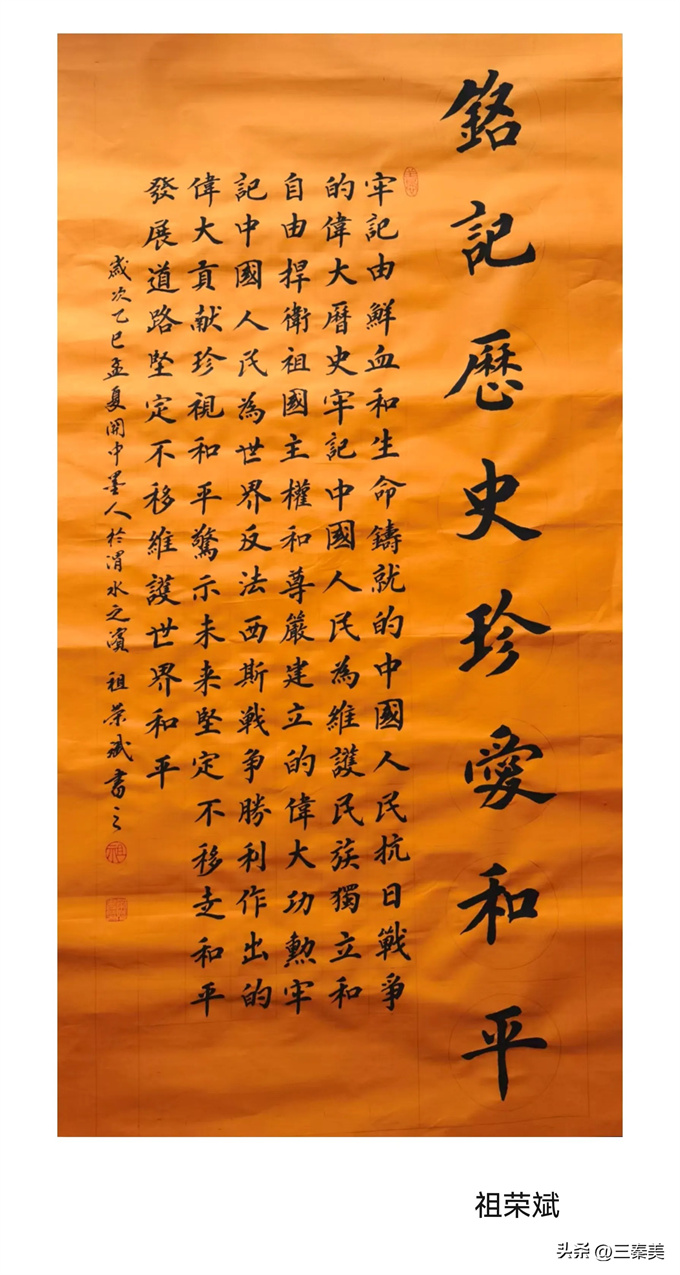 銘記歷史珍愛和平
牢記由鮮血和生命鑄就的中國人民抗日戰爭
的偉大曆史牢記中國人民為維護民族獨立和
自由捍衛祖國主權和尊嚴建立的偉大功勳牢
記中國人民為世界反法西斯戰争勝利作出的
偉大貢献珍視和平驚示未来堅定不移走和平
發展道路堅定不移維護世界和平
歲次乙巳孟夏関中墨人於渭水之濱 祖荣斌書之
祖荣斌
头条 @三秦美